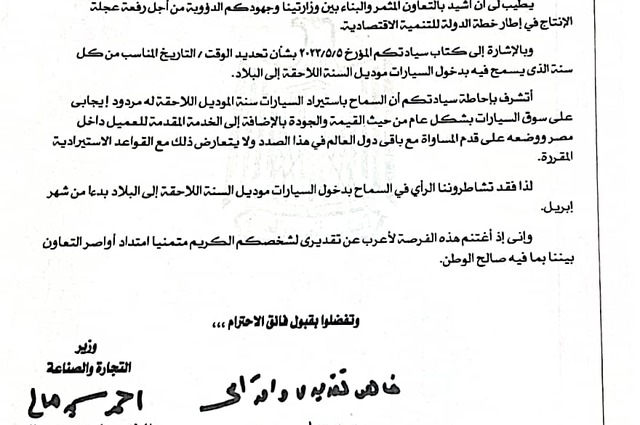 يطيب لى أن أشيد بالتعاون المثمر والبناء بين وزارتينا وجهودكم الدؤوبة من أجل رفعة عجلة
الإنتاج في إطار خطة الدولة للتنمية الاقتصادية.
وبالإشارة إلى كتاب سيادتكم المؤرخ ٢٠٢٢/٥/٥ بشأن تحديد الوقت / التاريخ المناسب من كل
سنة الذى يسمح فيه بدخول السيارات موديل السنة اللاحقة إلى البلاد.
أتشرف بإحاطة سيادتكم أن السماح باستيراد السيارات سنة الموديل اللاحقة له مردود إيجابى
على سوق السيارات بشكل عام من حيث القيمة والجودة بالإضافة إلى الخدمة المقدمة للعميل داخل
مصر ووضعه على قدم المساواة مع باقى دول العالم في هذا الصدد ولا يتعارض ذلك مع القواعد الاستيرادية
المقررة.
لذا فقد تشاطروننا الرأي في السماح بدخول السيارات موديل السنة اللاحقة إلى البلاد بدءا من شهر
إبريل.
وإنى إذ أغتنم هذه الفرصة لأعرب عن تقديرى لشخصكم الكريم متمنيا امتداد أواصر التعاون
بيننا بما فيه صالح الوطن.
وتفضلوا بقبول فائق الاحترام ,,,
وزير
التجارة والصناعة
خالص تقديرى واحترامى
احمد سمير صالح